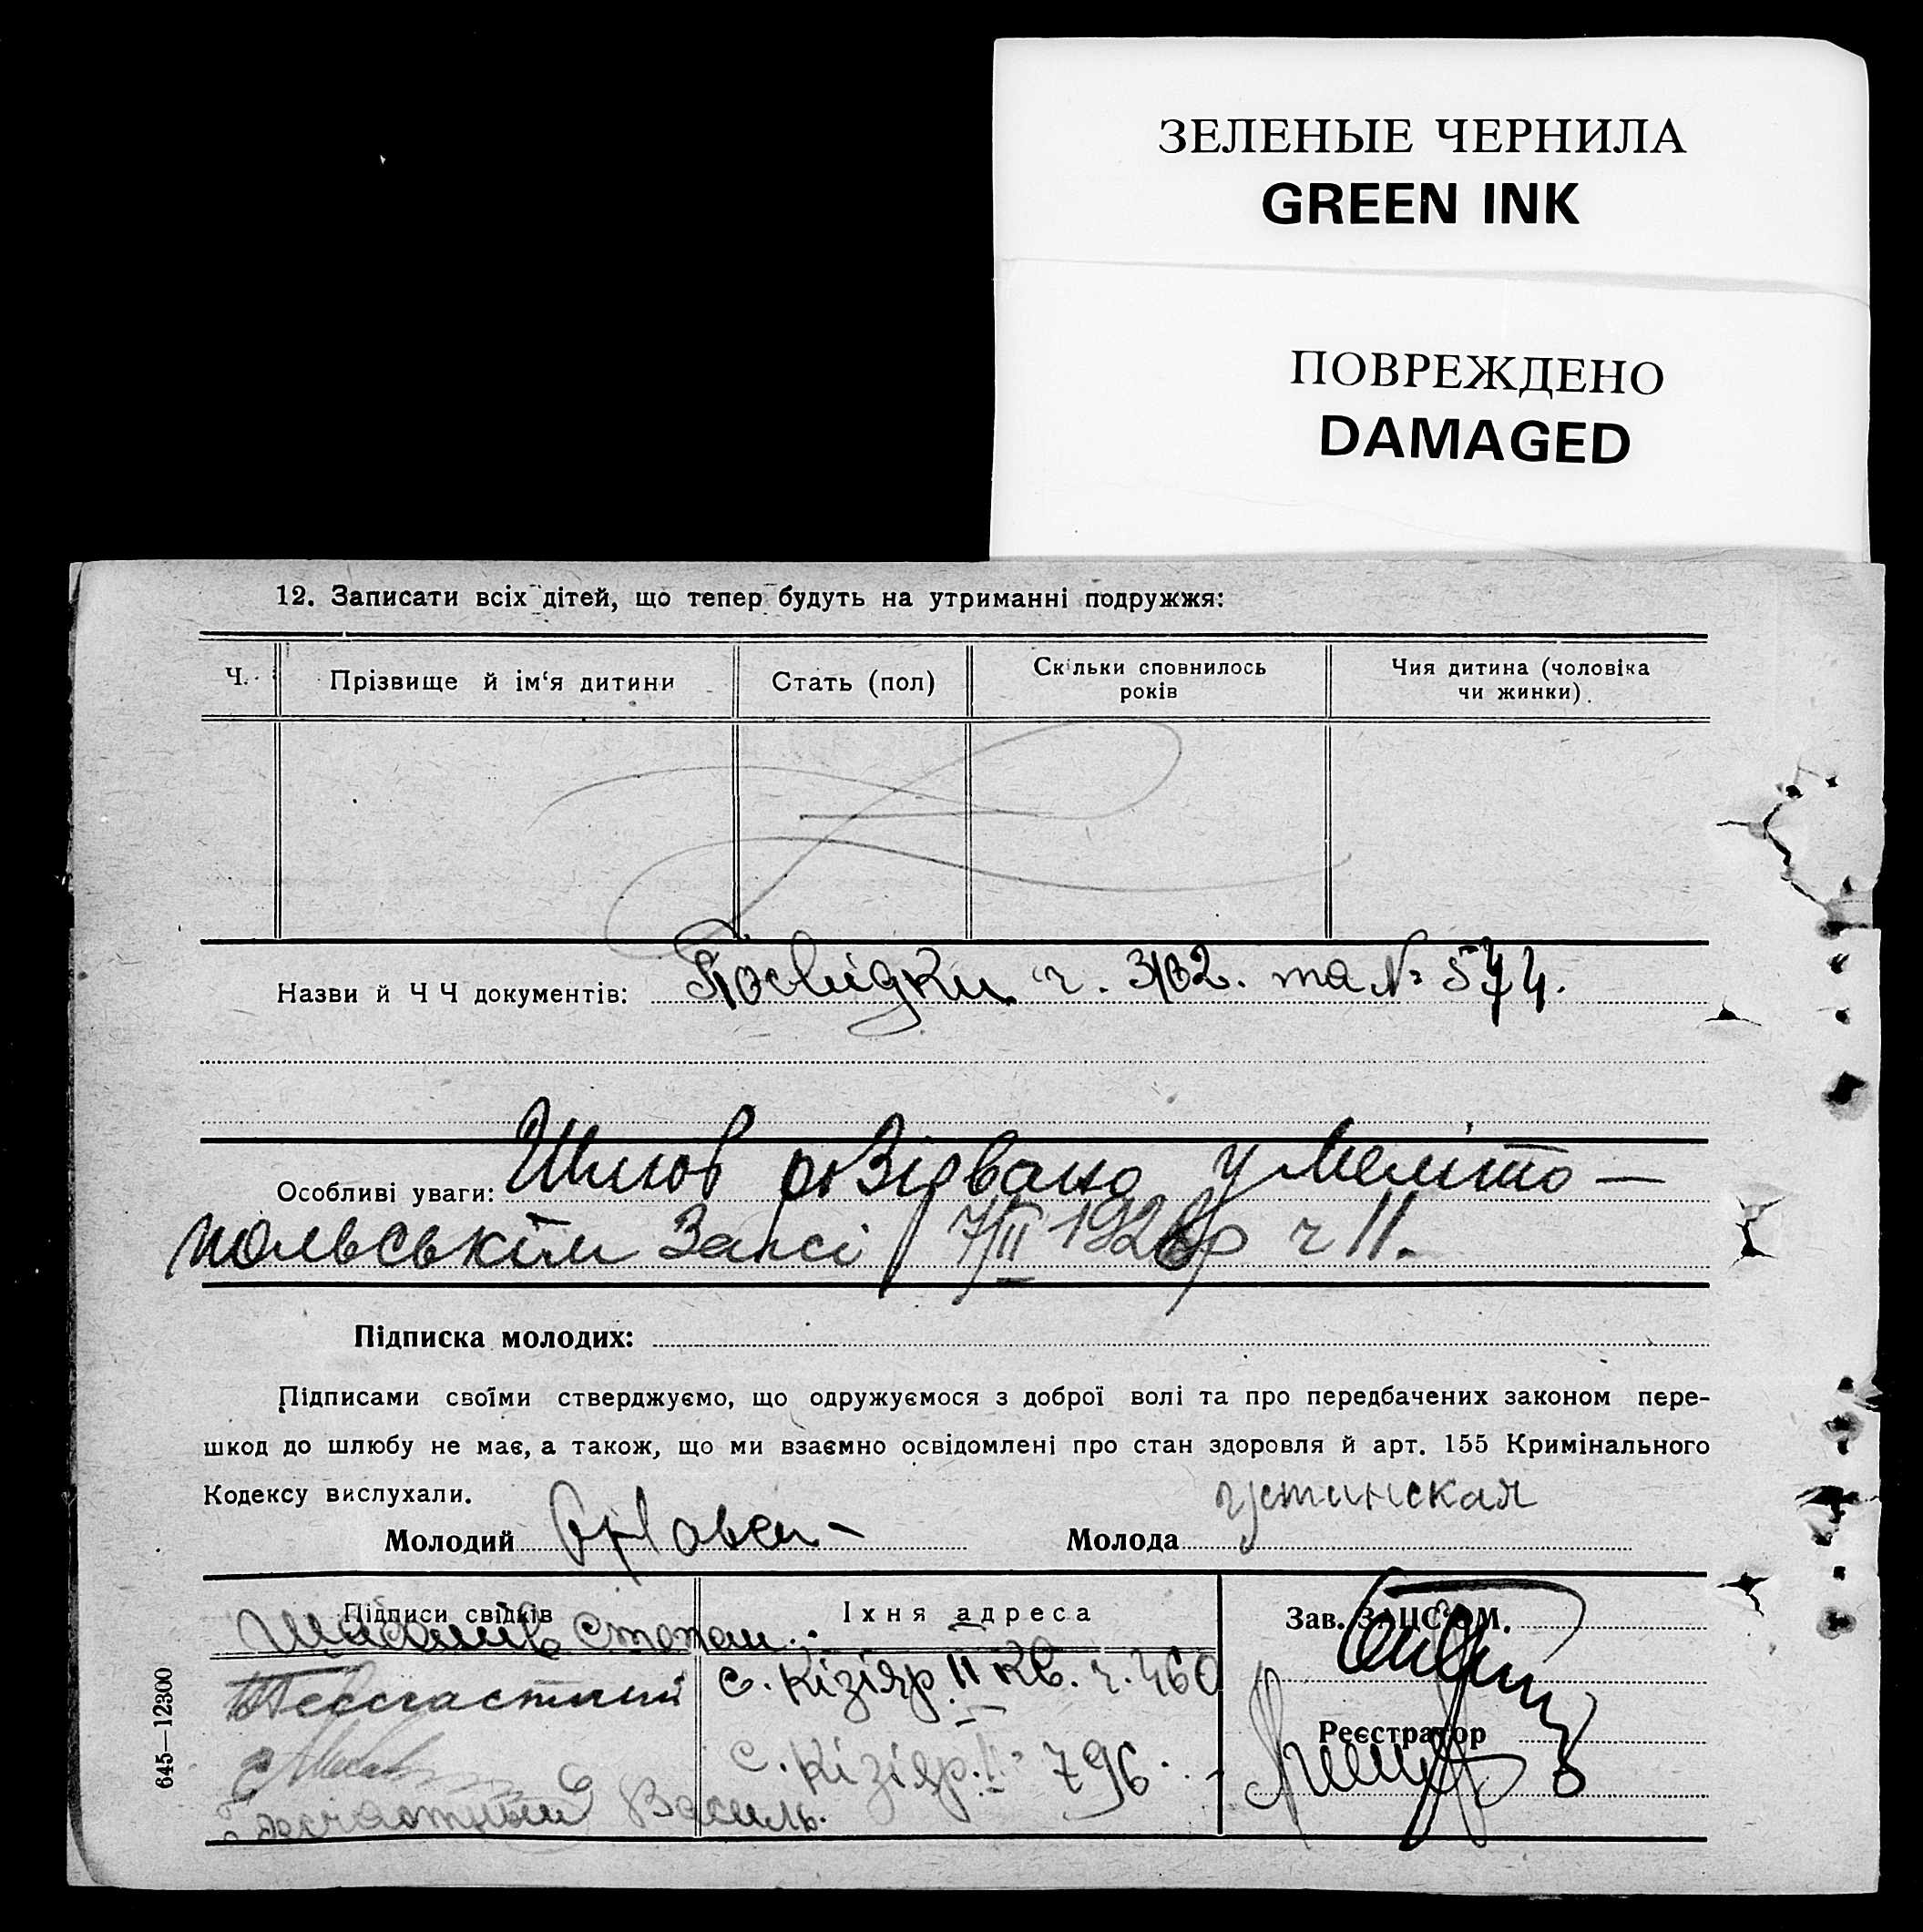 ЗЕЛЕНЫЕ ЧЕРНИЛА
GREEN INK
ПОВРЕЖДЕНО
DAMAGED
12. Записати всіх дітей, що тепер будуть на утриманні подружжя:
Ч. Прізвище й ім‘я дитини Стать (пол) Скільки сповнилось років Чия дитина (чоловіка чи жинки).
Назви й Ч Ч документів: Посвідки ч. 3102. та № 574.
Особливі уваги: Шлюб розірвано у Меліто—
польськім Загсі 7/II 1928р ч 11.
Підписка молодих:
Підписами своїми стверджуємо, що одружуємося з доброї волі та про передбачених законом пере-
шкод до шлюбу не має, а також, що ми взаємно освідомлені про стан здоровля й арт. 155 Кримінального
Кодексу вислухали.
Молодий Молода устинская
Підписи свідків Їхня адреса Зав. ЗАЦС‘ОМ.
Степан
Бессчастний с. Кізіяр II кв. ч. 460
Реєстратор
с. Кізіяр. II 796.
Василь.
645—12300